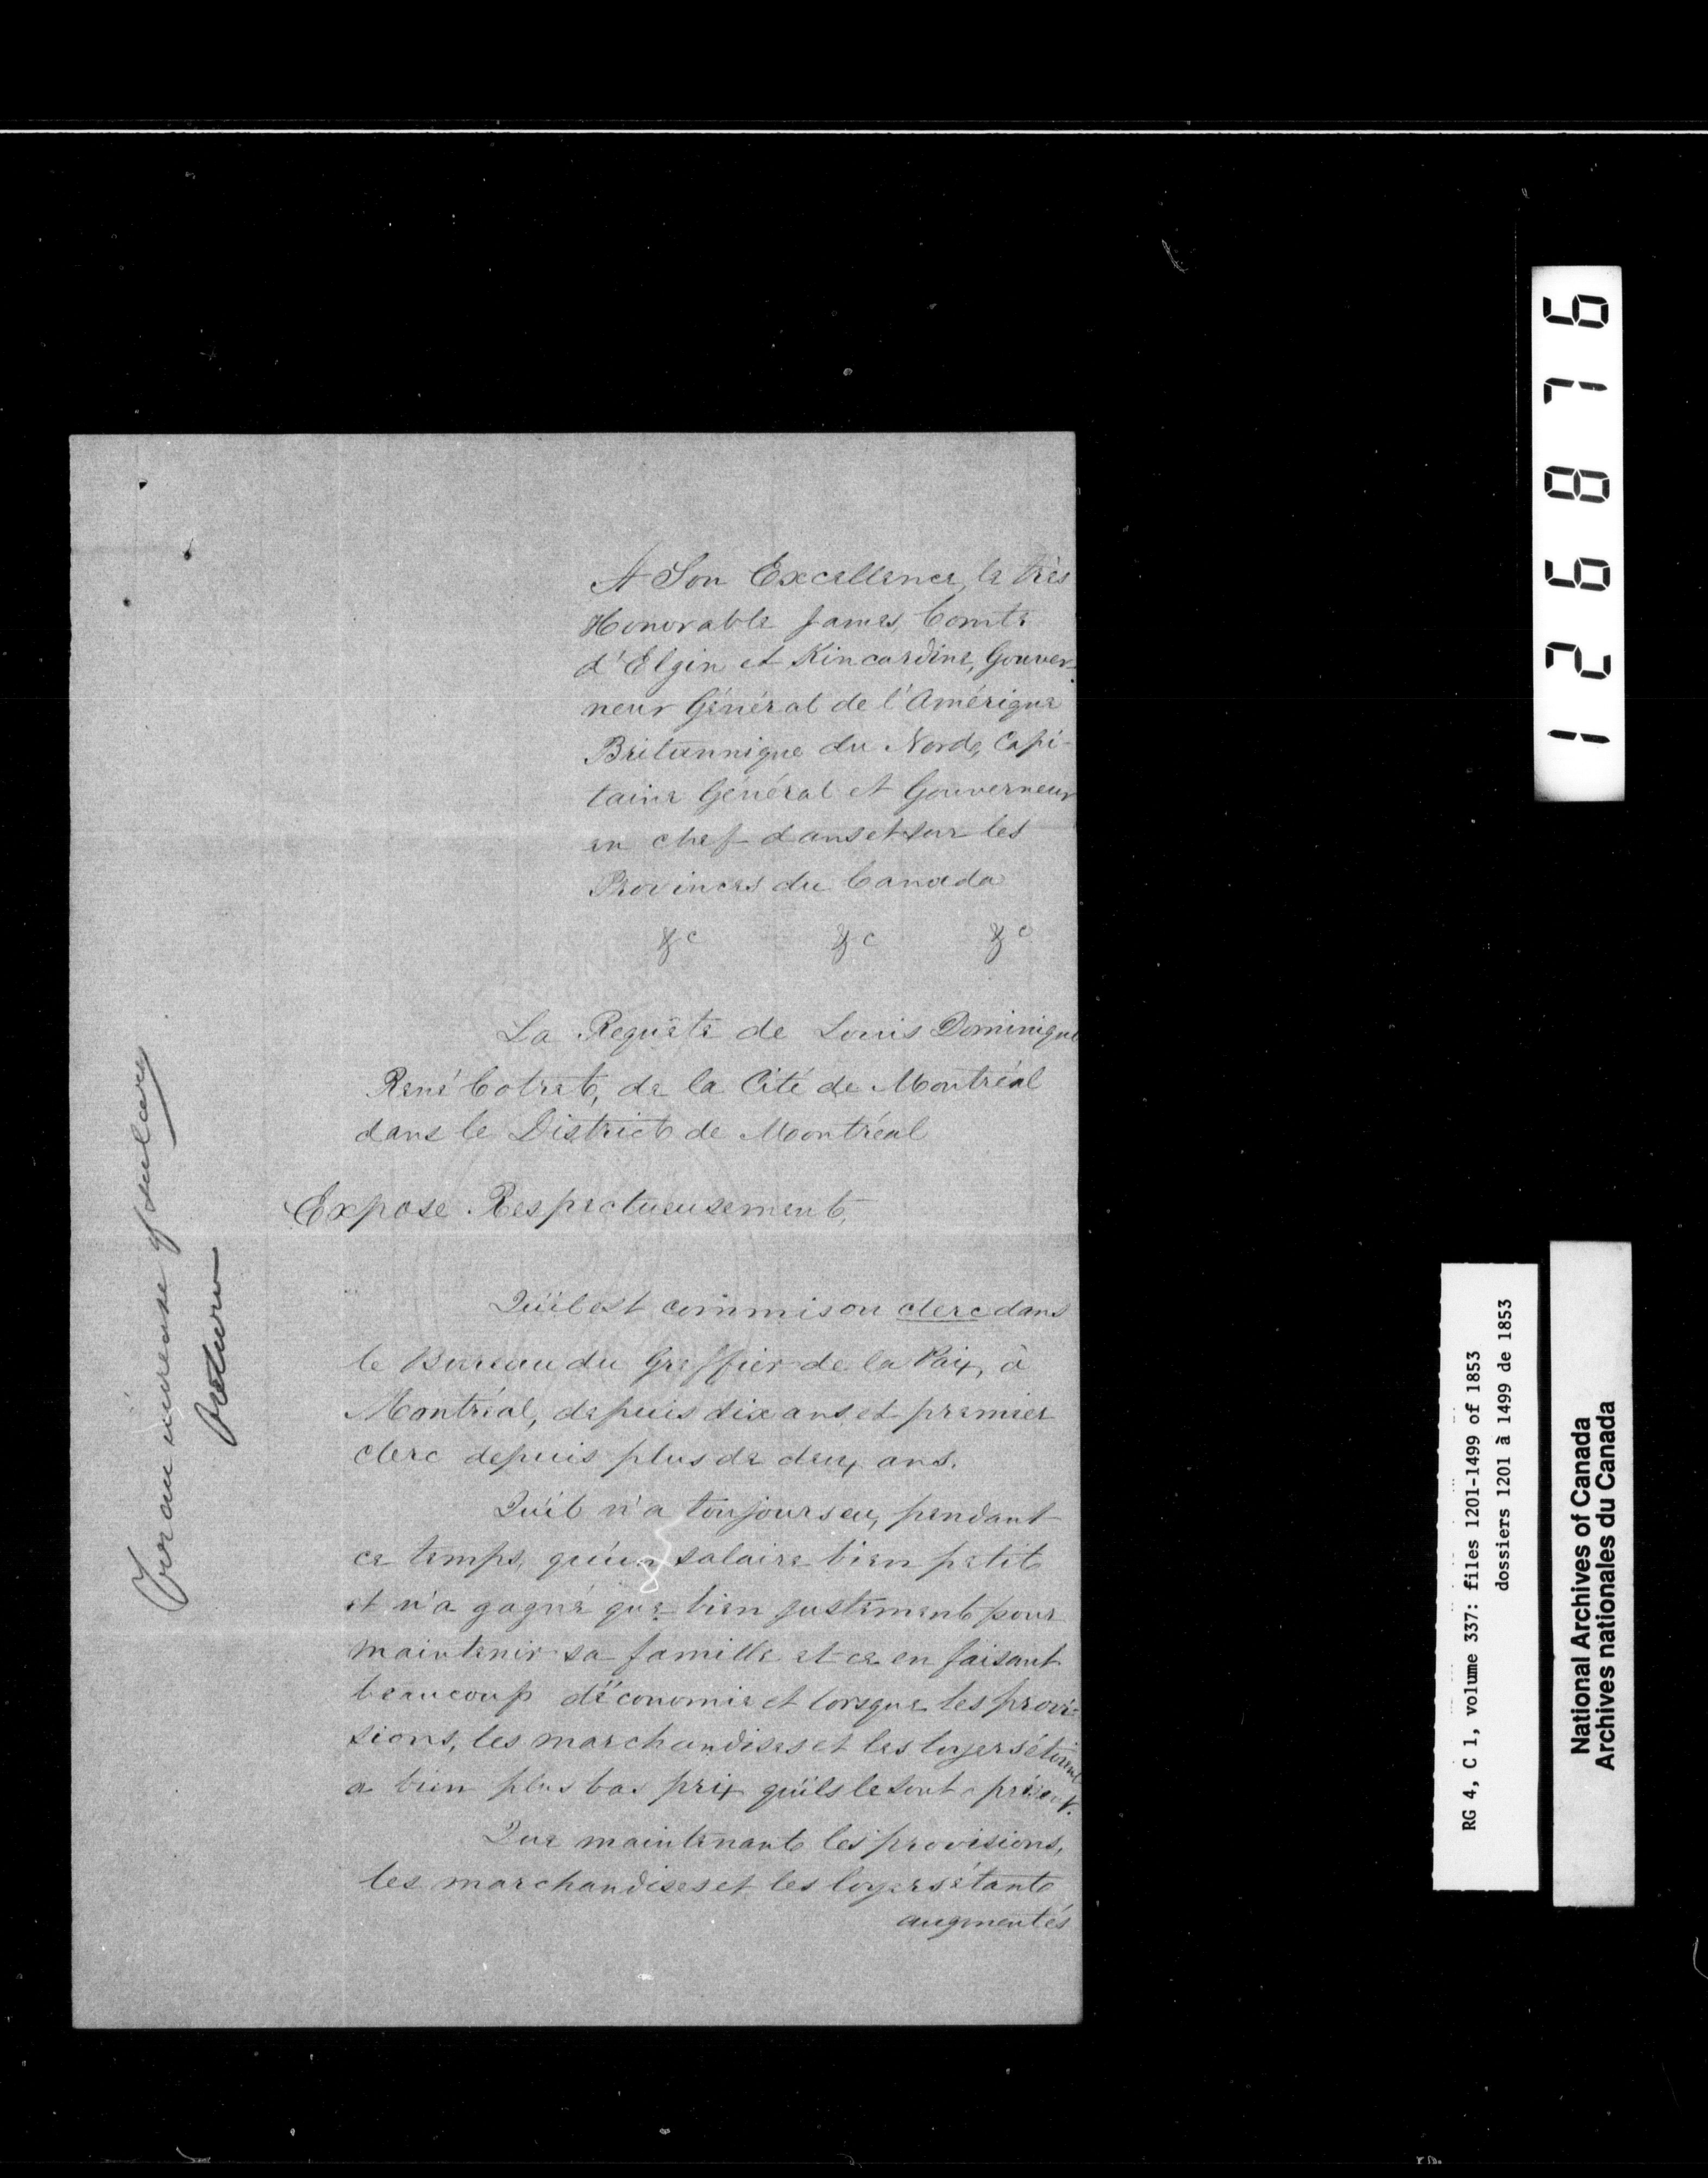 A Son Excellence, le très
Honorable James, Comte
d'Elgin et Kincardine, Gouver-
neur Général de l'Amérique
Britannique du Nord, Capi-
taine Général et Gouverneur
en chef dans et sur les
Provinces du Canada
&c &c &c
La Requête de Louis Dominique
René Cotret, de la Cité de Montréal
dans le District de Montréal
Expose Respectueusement,
Qu'il est commis ou clerc dans
le Bureau du Greffier de la Paix, à
Montréal, depuis dix ans et premier
clerc depuis plus de deux ans.
Qu'il n'a toujours eu, pendant
ce temps, qu'un salaire bien petit
et n'a gagné que bien justement pour
maintenir sa famille et ce en faisant
beaucoup d'économie et lorsque les provi-
sions, les marchandises et les loyers étaient
a bien plus bas prix qu'ils le sont a présent.
Que maintenant les provisions,
les marchandises et les loyers étant
augmentés
For an increase of salary
Return
126876
RG 4, C 1, volume 337: files 1201-1499 of 1853
dossiers 1201 à 1499 de 1853
National Archives of Canada
Archives nationales du Canada